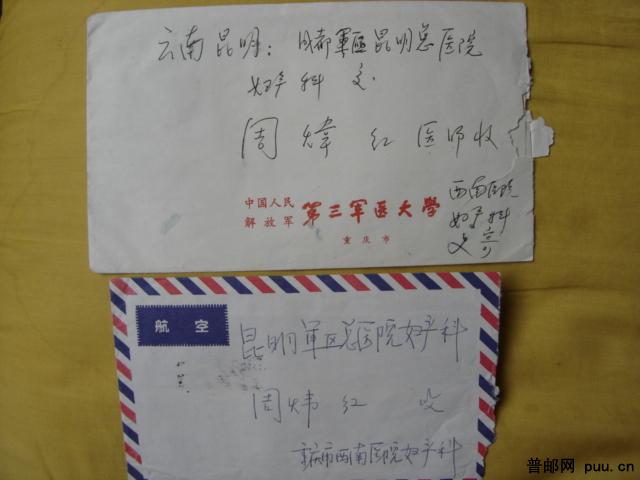 云南昆明：成都軍區昆明总医院
妇产科 交
周煒红医师收
中国人民
解放军
第三军医大学
重庆市
西南医院
妇产科
寄
航空
昆明軍区总医院妇产科
周炜红 收
重庆市西南医院妇产科
普邮网 puu.cn